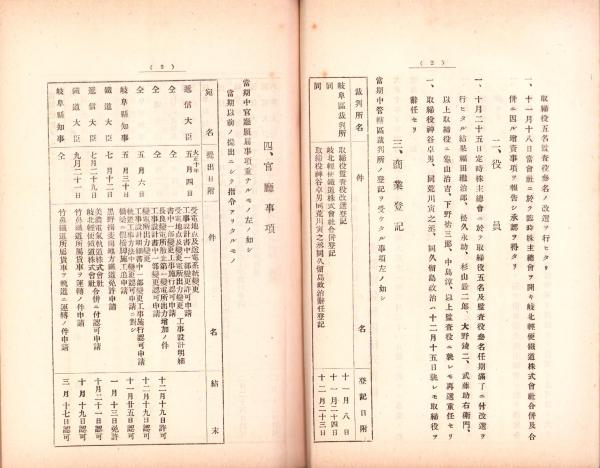 (2)
取締役五名監査役參名ノ改選ヲ行ヒタリ
一、十一月十八日當會社ニ於テ臨時株主總會ヲ開キ岐北輕便鐵道株式會社合併及合
併ニ因ル增資事項ヲ報告シ承認ヲ得タリ
二、役員
一、十月二十五日定時株主總會ニ於テ取締役五名及監査役參名任期滿了ニ付改選ヲ
行ヒタル結果福田繼治郎、松久永助、杉山鈴二郎、大野淸二、武藤助右衞門、
以上取締役ニ龜山治吉、下野祐三郎、中島淳、以上監査役ニ孰レモ再選重任セリ
一、取締役神谷卓男、同荒川寅之丞、同久留島政治ハ十二月十五日孰レモ取締役ヲ
辭任セリ
三、商業登記
當期中管轄區裁判所ノ登記ヲ受ケタル事項左ノ如シ
裁判所名 件名 登記日附
岐阜區裁判所 取締役監査役改選登記 十一月八日
同 岐北輕便鐵道株式會社合併登記 十一月二十四日
同 取締役神谷卓男同荒川寅之丞同久留島政治辭任登記 十二月二十三日
(3)
四、官廳事項
當期中官廳願屆事項重ナルモノ左ノ如シ
當期以前ノ提出ニシテ指令アリタルモノ
宛名 提出日附 件名 結末
遞信大臣 大正十年五月四日 受電地点及送電系統變更
工事設計書中一部變更許可申請 十二月十九日許可
仝 仝 受電地点及變電所出力變更、工事設計明細
書中一部變更工事施行認可申請 十二月十九日認可
仝 五月六日 長良變電所廢止第一變電所出力增加ノ件
工事設計書中一部變更認可申請
岐阜縣知事 五月三十日
鐵道大臣 七月二日 黑野揖斐間地方鐵道免許申請 十一月十三日免許
遞信大臣 七月二十九日 美濃電氣軌道株式會社
岐北輕便鐵道株式會社合併ニ付認可申請 十月二十一日認可
鐵道大臣 九月二十一日 竹鼻鐵道所屬貨車ヲ運轉ノ件申請 十月十九日認可
岐阜縣知事 仝 竹鼻鐵道所屬貨車ヲ軌道ニ運轉ノ件申請 三月十七日認可